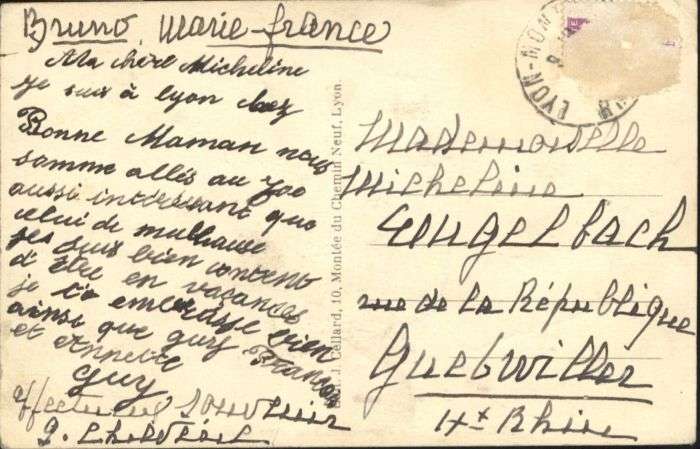 Bruno, Marie-france
Ma chère Micheline
je suis à lyon chez
Bonne Maman nous
somme allés au zoo
aussi intéressant que
celui de mulhouse
je suis bien content
d'être en vacances
je t'embrasse bien
ainsi que guy François
et Annette
Guy
Affectueux souvenir
Edit. J. Cellard, 10, Montée du Chemin Neuf, Lyon
LYON-MON
Mademoiselle
Micheline
Engelbach
rue de la République
Guebwiller
Ht Rhin